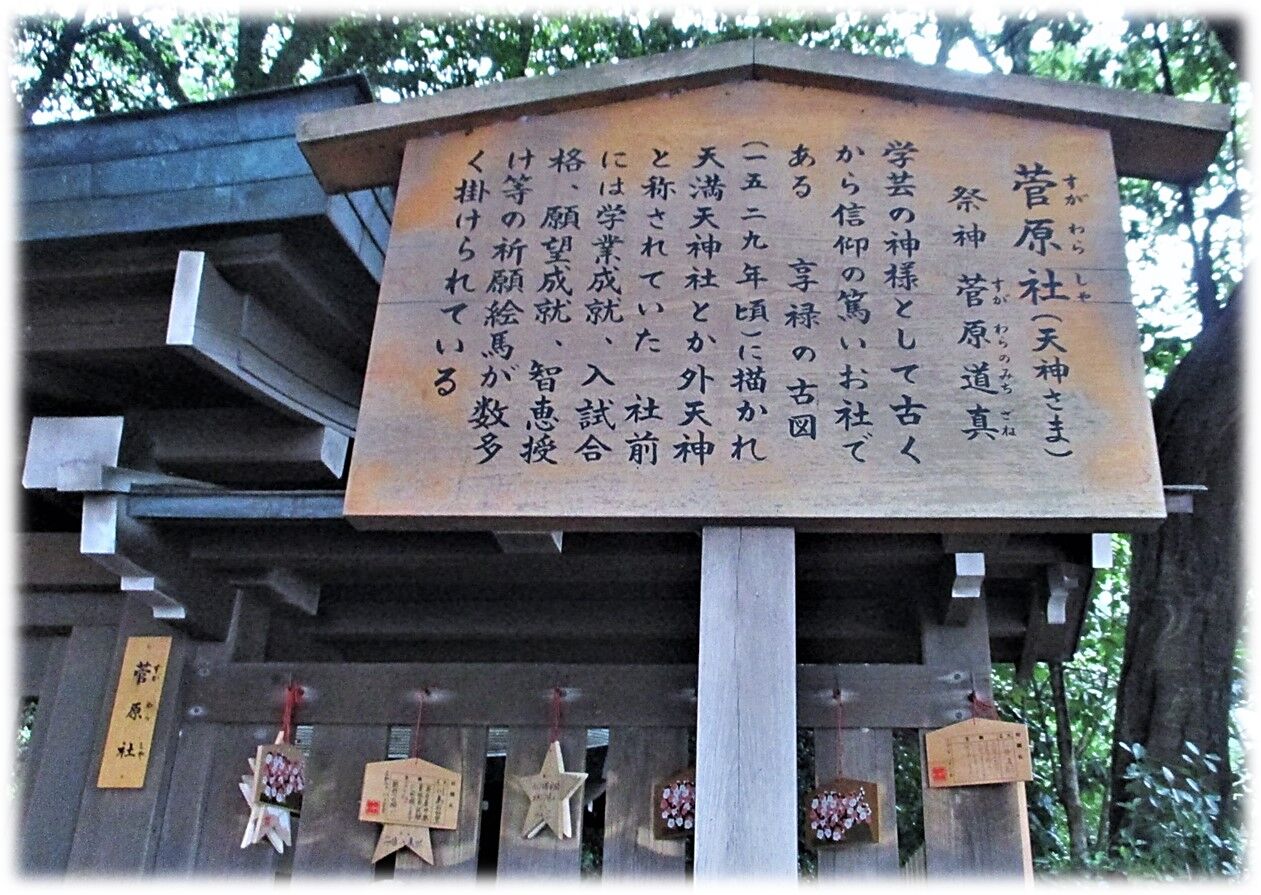 菅原社(天神さま)
すがわらしゃ
祭神 菅原道真
すがわらのみちざね
学芸の神様として古く
から信仰の篤いお社で
ある 享禄の古図
(一五二九年頃)に描かれ
天満天神社とか外天神
と称されていた 社前
には学業成就、入試合
格、願望成就、智恵授
け等の祈願絵馬が数多
く掛けられている
菅原社
すがわらしゃ